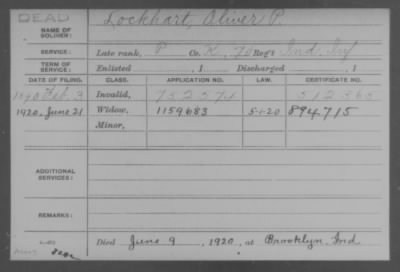 DEAD
NAME OF SOLDIER: Lockhart, Oliver P.
SERVICE: Late rank, P Co. K, 70 Reg't Ind. Inf
TERM OF SERVICE: Enlisted , 1 Discharged , 1
DATE OF FILING. CLASS. APPLICATION NO. LAW. CERTIFICATE NO.
1890 Feb. 3 Invalid, 752574 512565
1920, June 21 Widow, 1159683 5-1-20 894715
Minor,
ADDITIONAL SERVICES:
REMARKS:
Died June 9, 1920, at Brooklyn, Ind